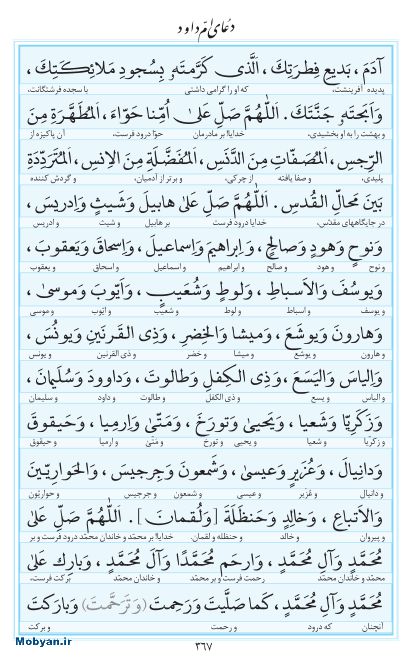 دعای امّ داود
آدَمَ ، بَدیعِ فِطرَتِکَ ، اَلَّذی کَرَّمتَهٗ بِسُجودِ مَلائِکَتِکَ ،
پدیده آفرینشت، که او را گرامی داشتی با سجده فرشتگانت،
وَ اَبَحتَهٗ جَنَّتَکَ . اَللّٰهُمَّ صَلِّ عَلیٰ اُمِّنا حَوّاءَ ، اَلمُطَهَّرَةِ مِنَ
و بهشت را به او بخشیدی، خدایا! بر مادرمان حوّا درود فرست، آن پاکیزه از
الرِّجسِ ، اَلمُصَفّاتِ مِنَ الدَّنَسِ ، اَلمُفَضَّلَةِ مِنَ الاِنسِ ، اَلمُتَرَدِّدَةِ
پلیدی، و صفا یافته از چرکی، و برتر از آدمیان، و گردش کننده
بَینَ مَحالِّ القُدسِ . اَللّٰهُمَّ صَلِّ عَلیٰ هابیلَ وَ شَیثٍ وَ اِدریسَ ،
در جایگاههای مقدّس، خدایا درود فرست بر هابیل و شیث و ادریس
وَ نوحٍ وَ هودٍ وَ صالِحٍ ، وَ اِبراهیمَ وَ اِسماعیلَ ، وَ اِسحاقَ وَ یَعقوبَ ،
و نوح و هود و صالح و ابراهیم و اسماعیل و اسحاق و یعقوب
وَ یوسُفَ وَ الاَسباطِ ، وَ لوطٍ وَ شُعَیبٍ ، وَ اَیّوبَ وَ موسیٰ ،
و یوسف و اسباط و لوط و شعیب و ایّوب و موسی
وَ هارونَ وَ یوشَعَ ، وَ میشا وَ الخِضرِ ، وَ ذِی القَرنَینِ وَ یونُسَ ،
و هارون و یوشع و میشا و خضر و ذی القرنین و یونس
وَ اِلیاسَ وَ الیَسَعَ ، وَ ذِی الکِفلِ وَ طالوتَ ، وَ داوودَ وَ سُلَیمانَ ،
و الیاس و یسع و ذی الکفل و طالوت و داود و سلیمان
وَ زَکَرِیّا وَ شَعیا ، وَ یَحییٰ وَ تورَخَ ، وَ مَتّیٰ وَ اِرمِیا ، وَ حَیقوقَ
و زکریّا و شعیا و یحیی و تورخ و متّی و ارمیا و حیقوق
وَ دانِیالَ ، وَ عُزَیرٍ وَ عیسیٰ ، وَ شَمعونَ وَ جِرجیسَ ، وَ الحَوارِیّینَ
و دانیال و عزیر و عیسی و شمعون و جرجیس و حواریّون
وَ الاَتباعِ ، وَ خالِدٍ وَ حَنظَلَةَ [وَ لُقمانَ] . اَللّٰهُمَّ صَلِّ عَلیٰ
و پیروان و خالد و حنظله و لقمان. خدایا! بر محمّد و خاندان محمّد درود فرست و بر
مُحَمَّدٍ وَ آلِ مُحَمَّدٍ ، وَ ارحَم مُحَمَّدًا وَ آلَ مُحَمَّدٍ ، وَ بارِک عَلیٰ
محمّد و خاندان محمّد رحمت فرست و بر محمّد و خاندان محمّد برکت فرست،
مُحَمَّدٍ وَ آلِ مُحَمَّدٍ ، کَما صَلَّیتَ وَ رَحِمتَ (وَ تَرَحَّمتَ) وَ بارَکتَ
آنچنان که درود و رحمت و برکت
۳۶۷
Mobyan.ir